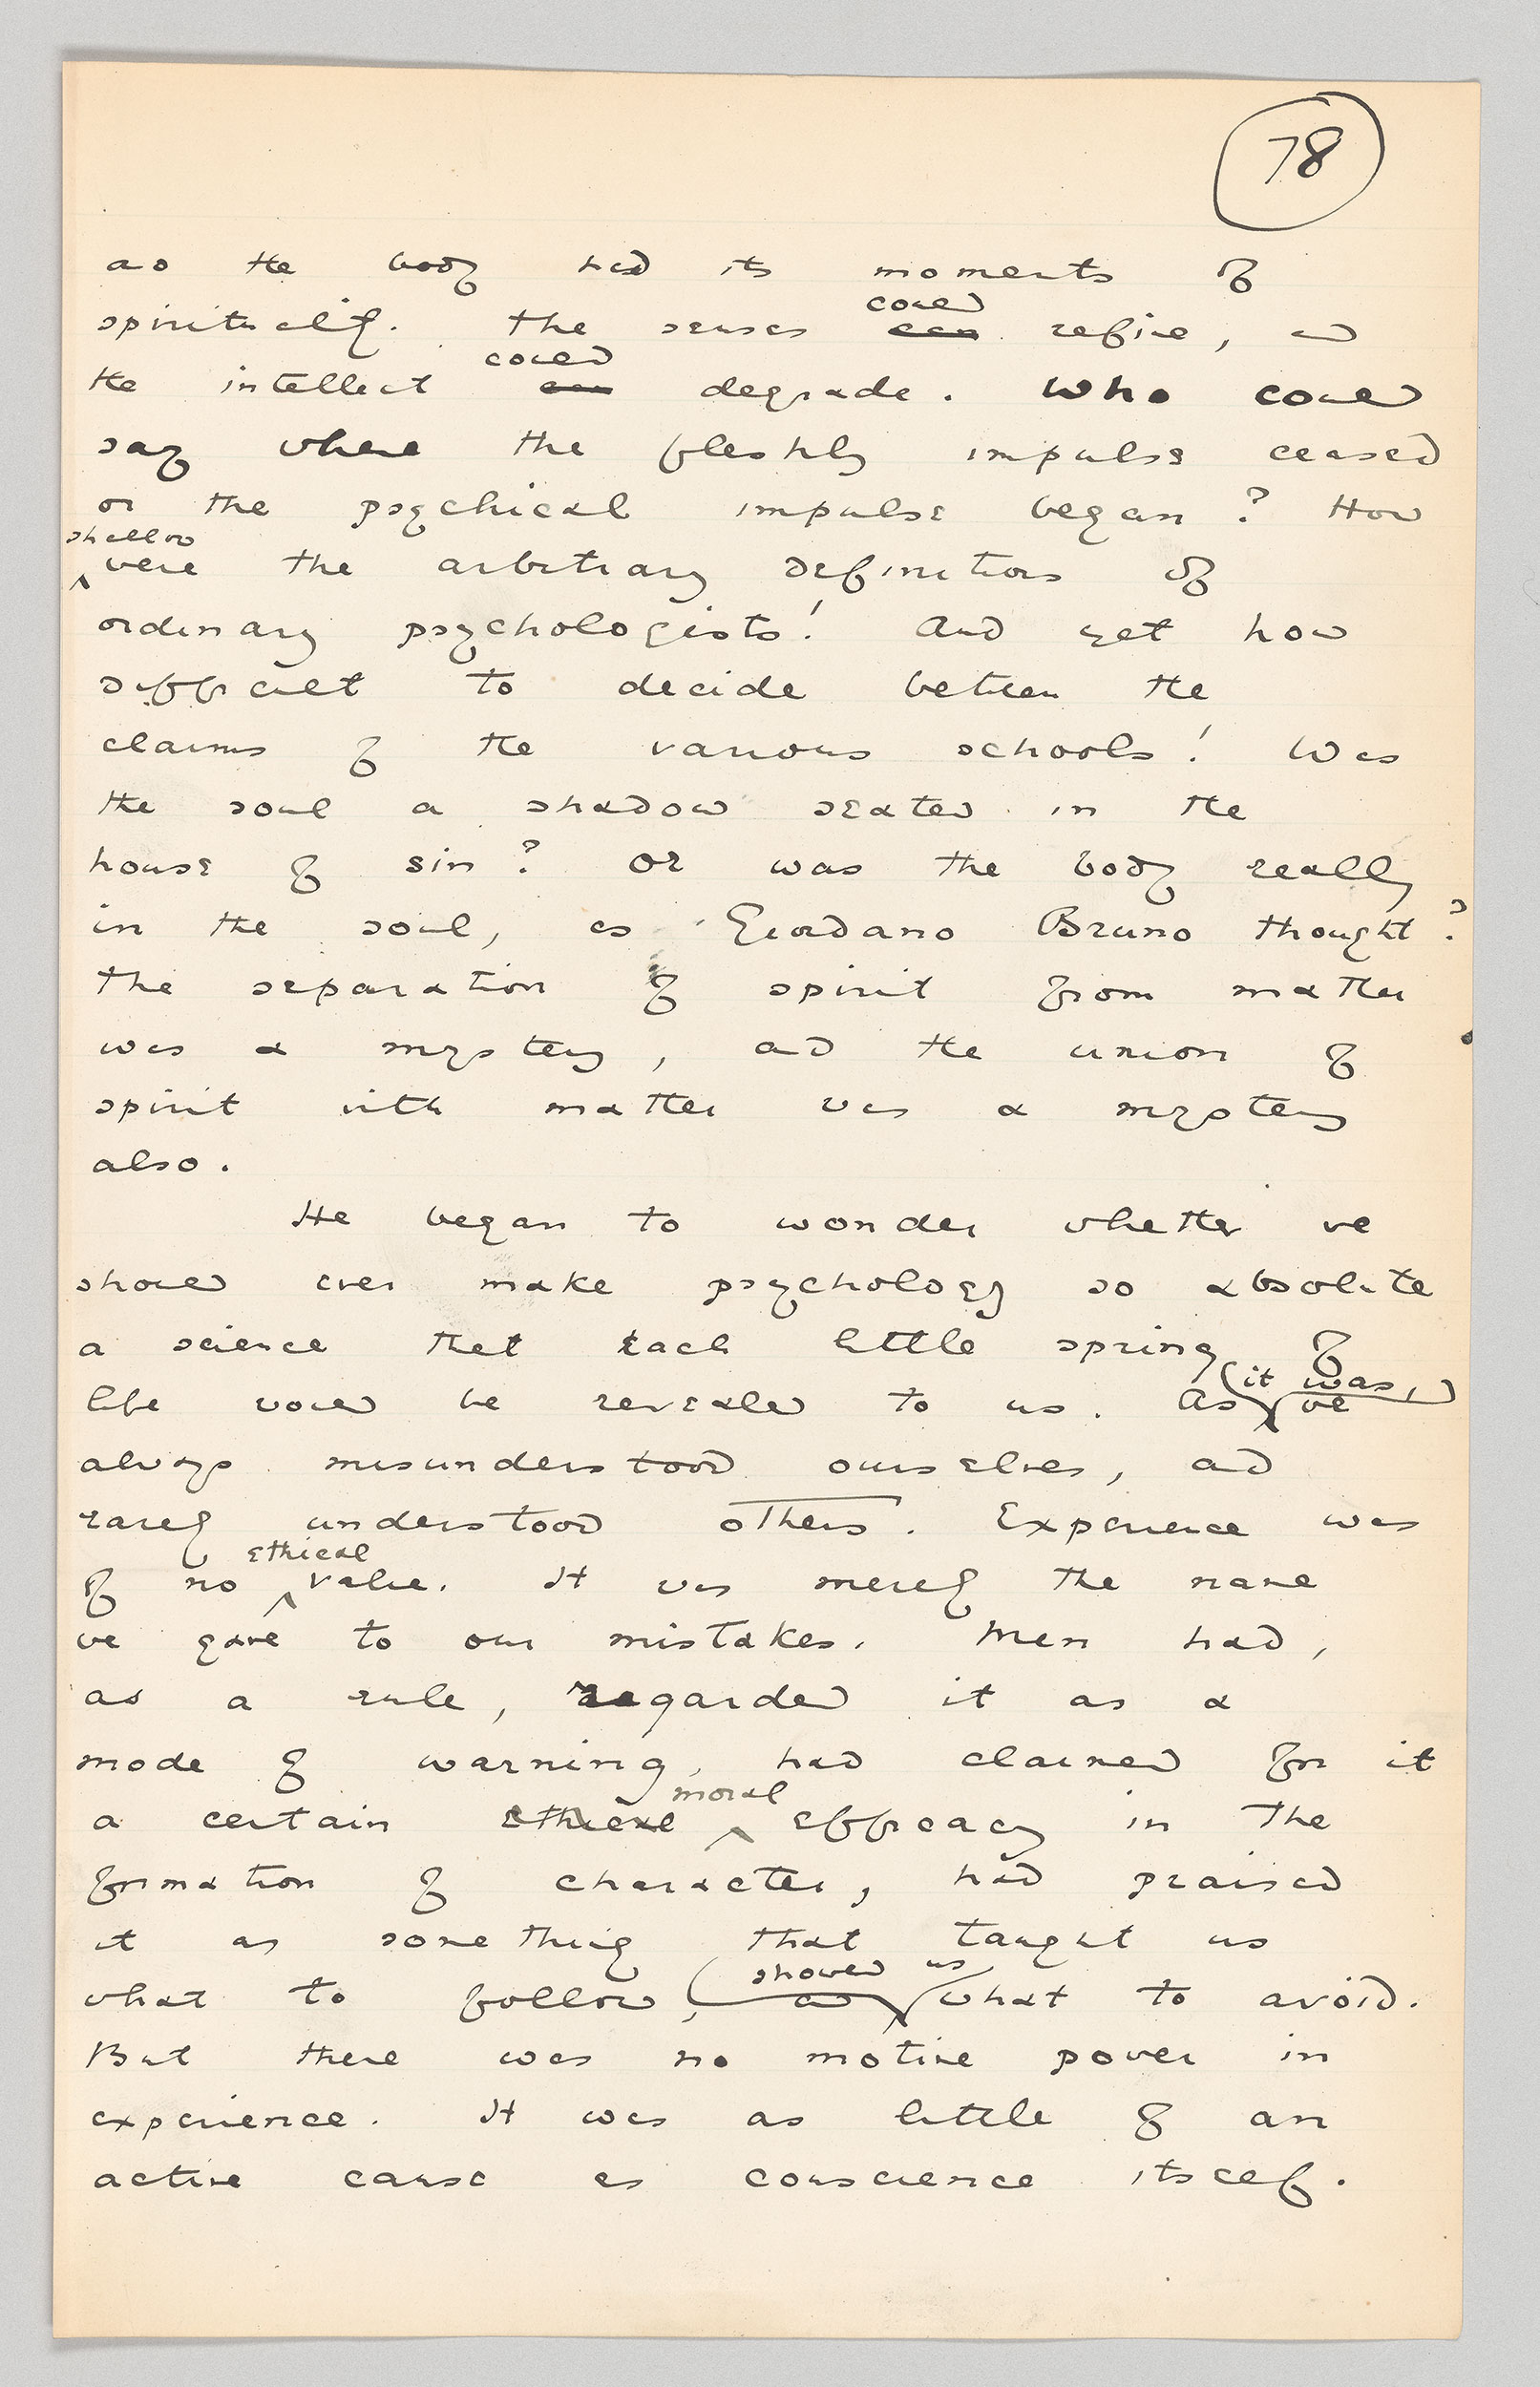 78
as the body had its moments of
spirituality. The senses could can refine, and
the intellect could can degrade. Who could
say where the fleshly impulse ceased
or the psychical impulse began? How
shallow were the arbitrary definitions of
ordinary psychologists! And yet how
difficult to decide between the
claims of the various schools! Was
the soul a shadow seated in the
house of sin? Or was the body really
in the soul, as Giordano Bruno thought?
The separation of spirit from matter
was a mystery, and the union of
spirit with matter was a mystery
also.
He began to wonder whether we
should ever make psychology so absolute
a science that each little spring of
life would be revealed to us. As it was, we
always misunderstood ourselves, and
rarely understood others. Experience was
of no ethical value. It was merely the name
we gave to our mistakes. Men had,
as a rule, regarded it as a
mode of warning, had claimed for it
a certain ethical moral efficacy in the
formation of character, had praised
it as something that taught us
what to follow, and showed us what to avoid.
But there was no motive power in
experience. It was as little of an
active cause as conscience itself.